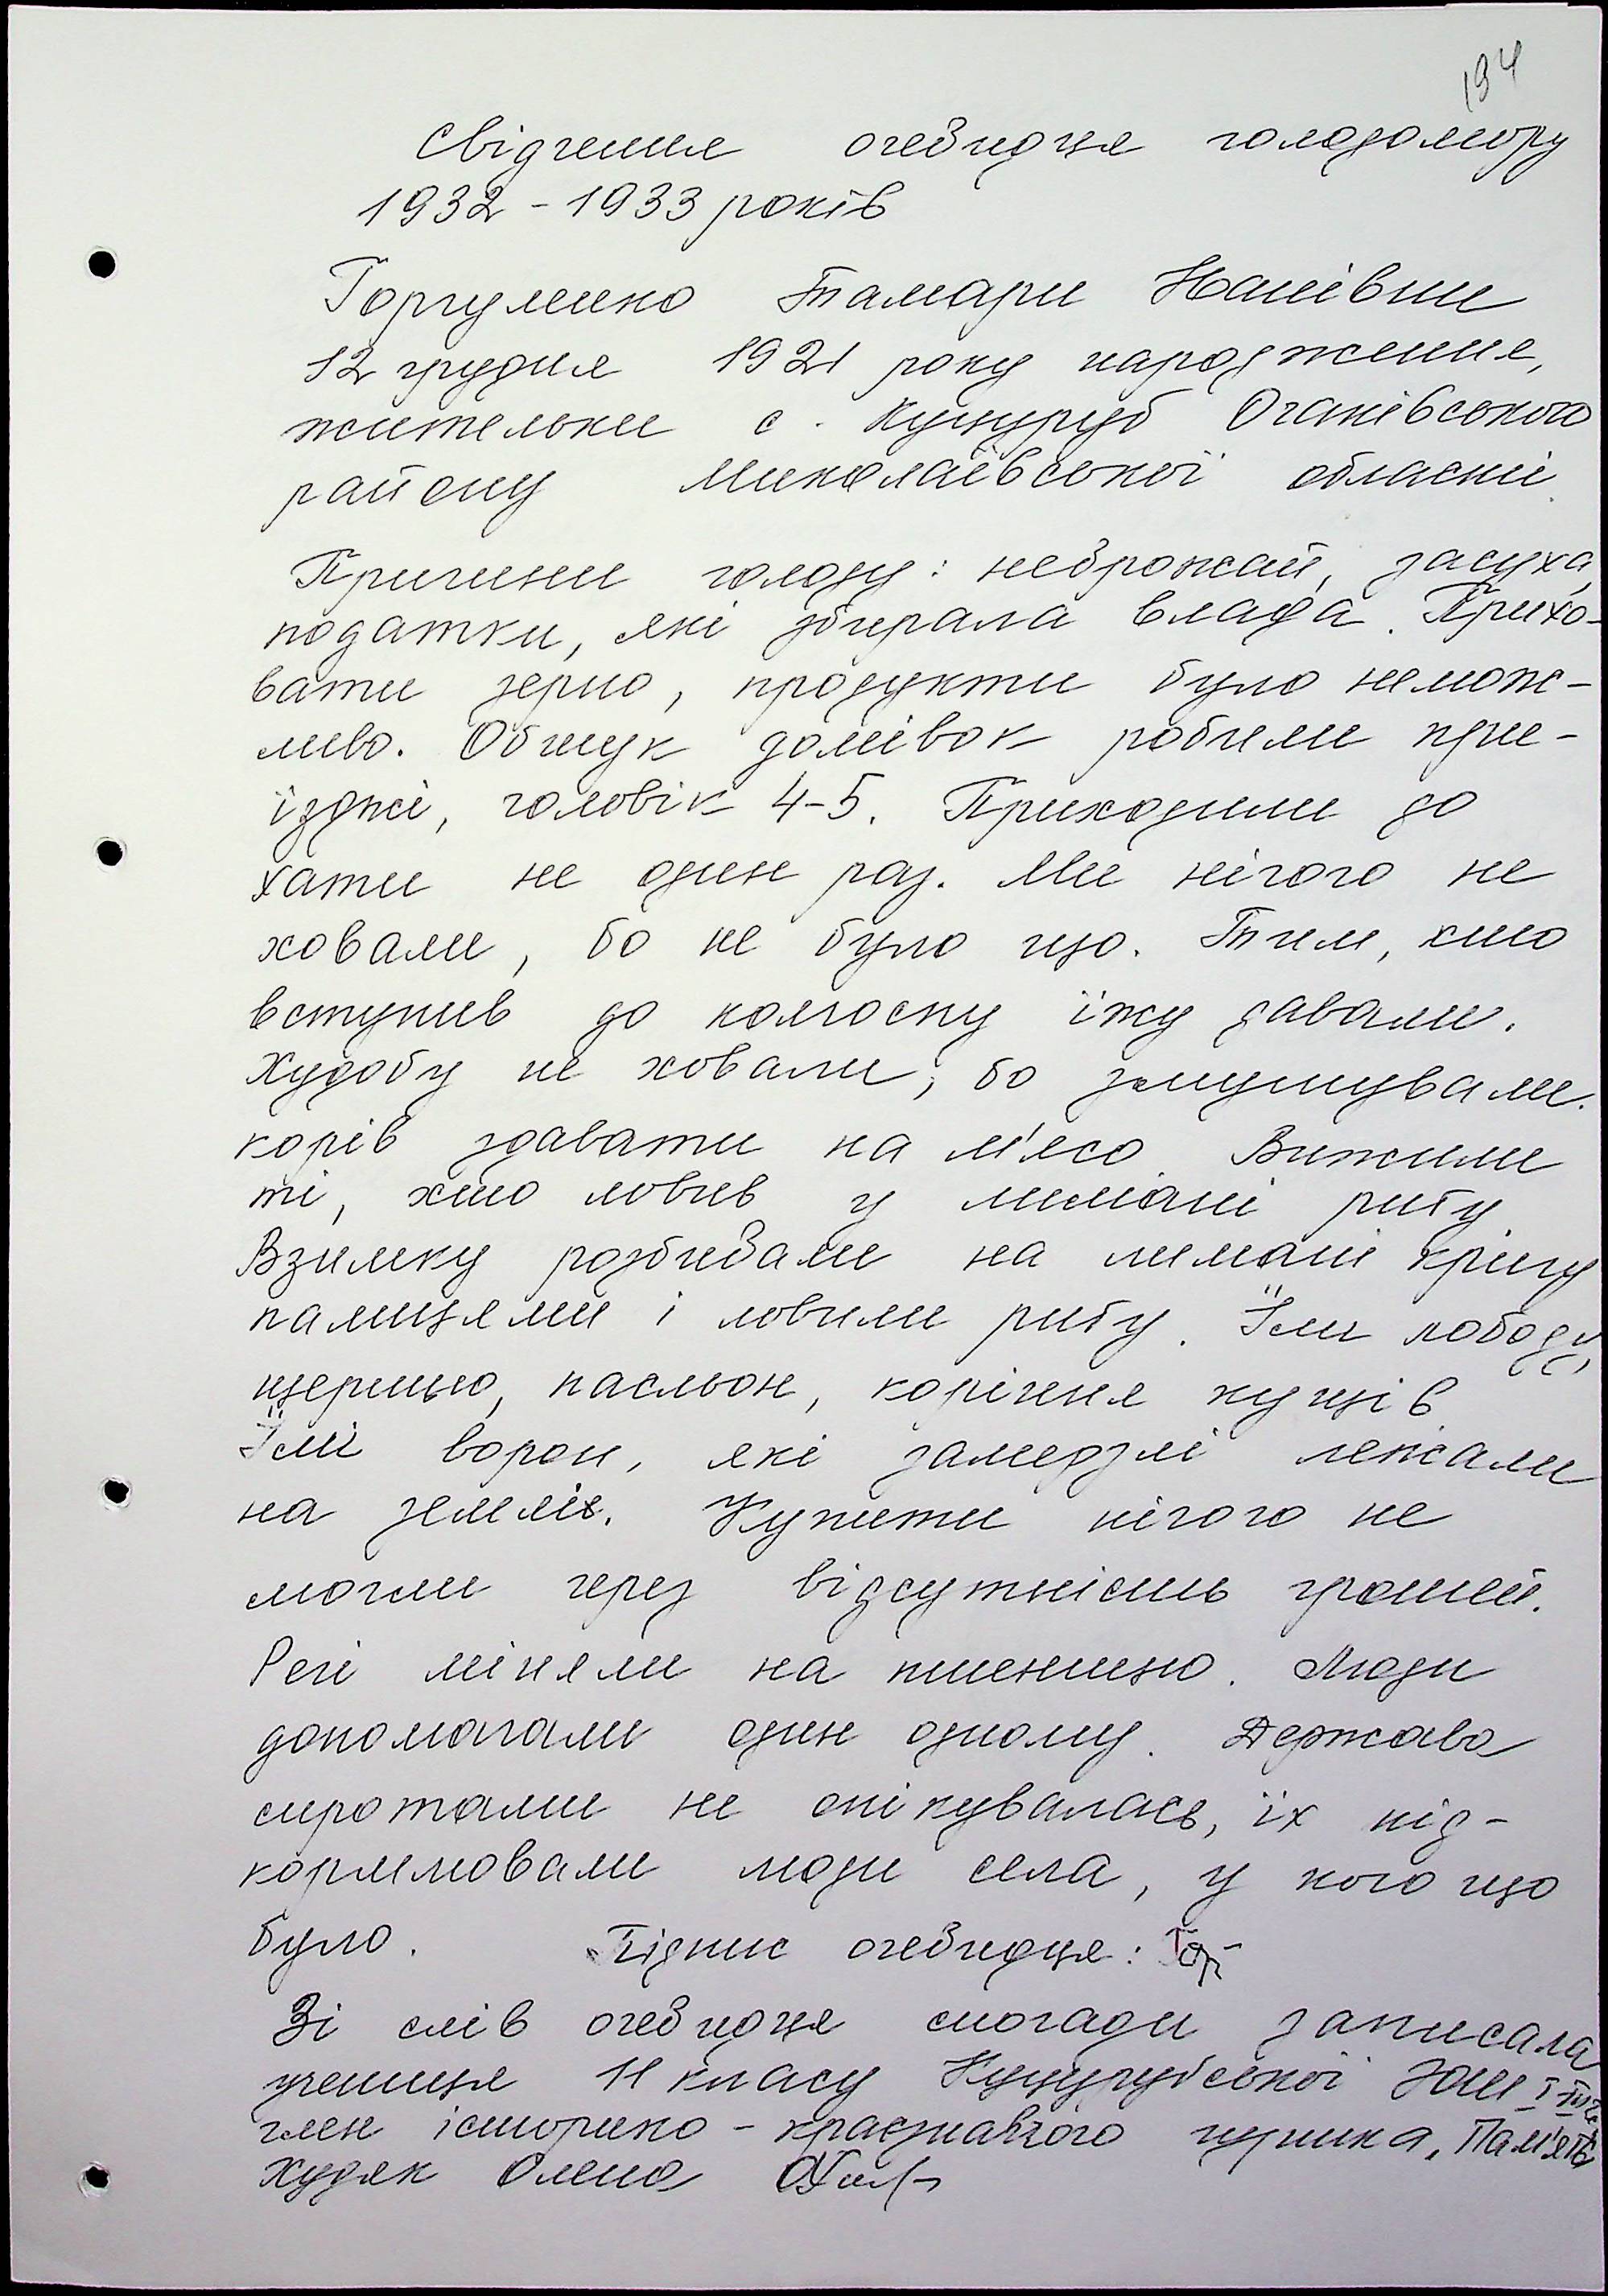 194
Свідчення очевидця голодомору
1932 - 1933 років
Горгуленко Тамари
12 грудня 1921 року народження,
жительки с. Куцуруб Очаківського
району Миколаївської області.
Причини голоду: неврожай, засуха,
податки, які збирала влада. Прихо-
вати зерно, продукти було немож-
ливо. Обшук домівок робили при-
їзджі, чоловік 4-5. Приходили до
хати не один раз. Ми нічого не
ховали, бо не було що. Тим, хто
вступив до колгоспу їжу давали.
Худобу не ховали, бо змушували
корів здавати на м'ясо. Вижили
ті, хто ловив у лимані рибу.
Взимку розбивали на лимані кригу
палицями і ловили рибу. Їли лободу,
щерицю, пасльон, коріння кущів.
Їли ворон, які замерзлі лежали
на землі. Купити нічого не
могли через відсутність грошей.
Речі міняли на пшеницю. Люди
допомагали один одному. Держава
сиротами не опікувалась, їх під-
кормлювали люди села, у кого що
було. Підпис очевидця: Гор
Зі слів очевидця спогади записала
учениця 11 класу Куцурубської ЗОШ I-III
член історико-краєзнавчого гуртка „Пам'ять
Худяк Олена